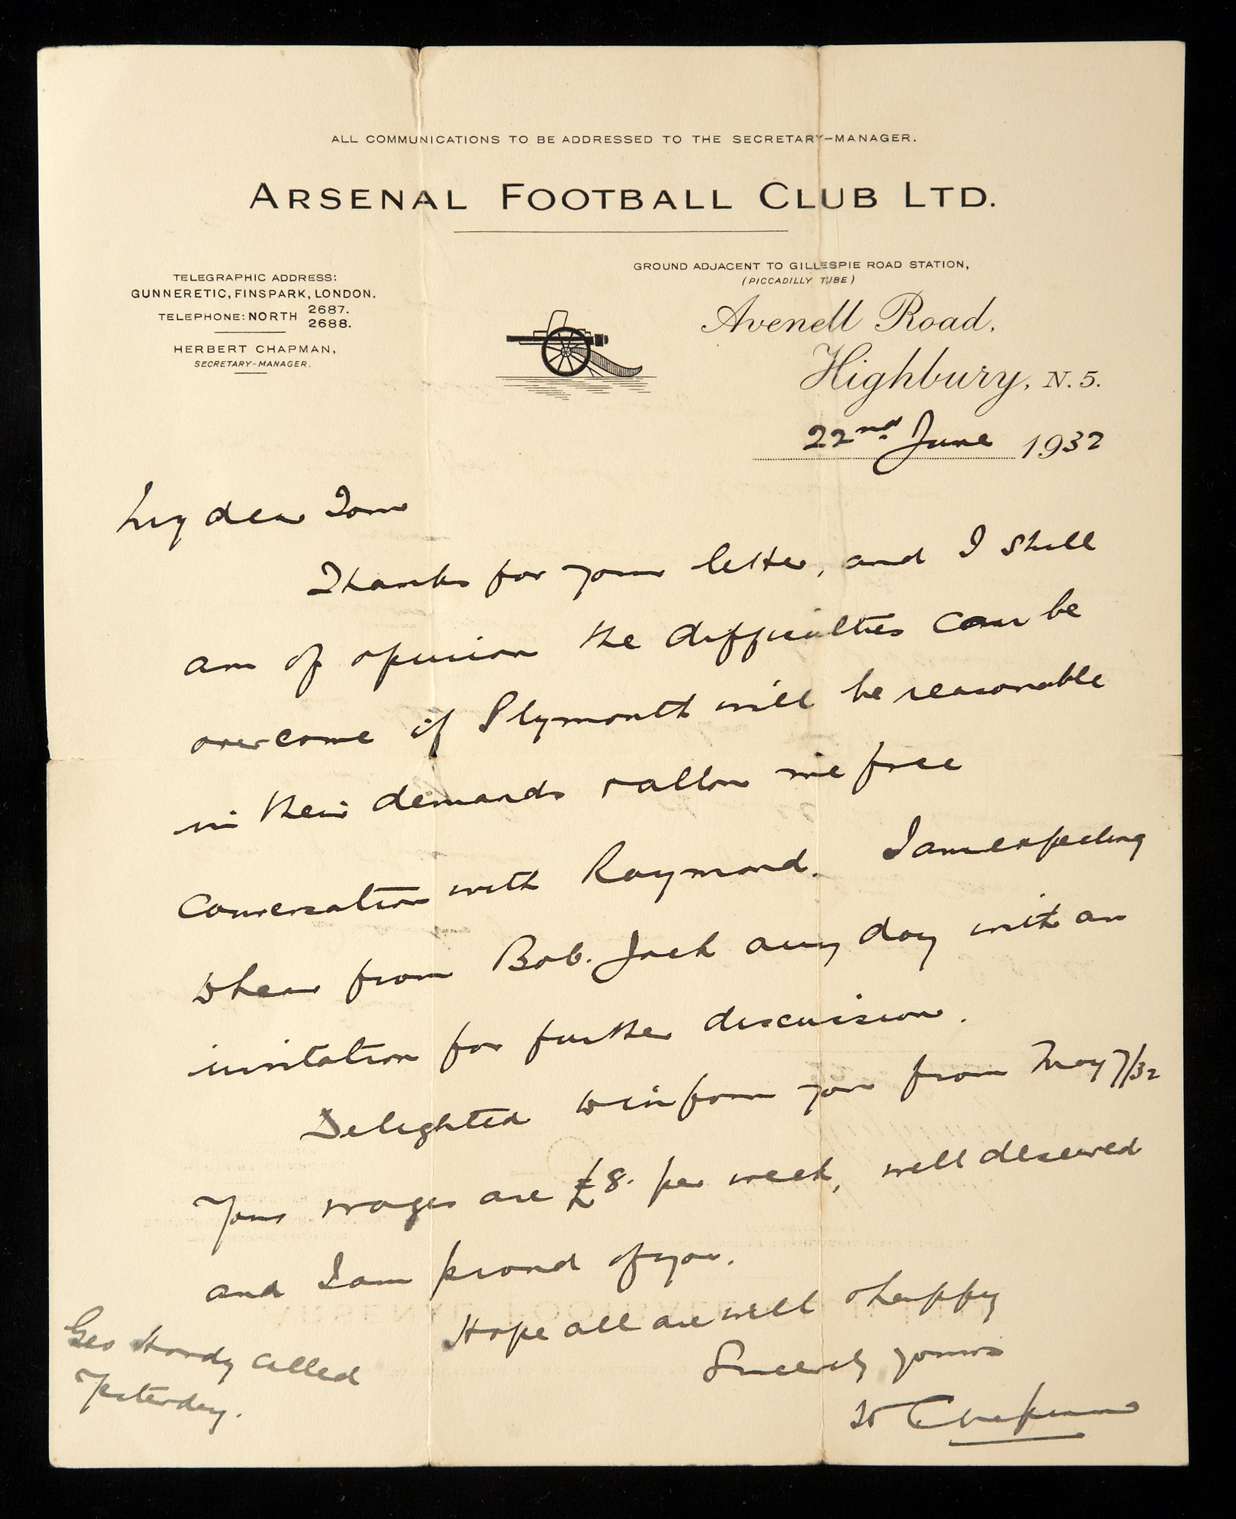 ALL COMMUNICATIONS TO BE ADDRESSED TO THE SECRETARY-MANAGER.
ARSENAL FOOTBALL CLUB LTD.
TELEGRAPHIC ADDRESS:
GUNNERETIC, FINSPARK, LONDON.
TELEPHONE: NORTH 2687.
2688.
HERBERT CHAPMAN,
SECRETARY-MANAGER.
GROUND ADJACENT TO GILLESPIE ROAD STATION,
(PICCADILLY TUBE)
Avenell Road,
Highbury, N. 5.
22nd June 1932
My dear Tom
Thanks for your letter, and I still
am of opinion the difficulties can be
overcome if Plymouth will be reasonable
in their demands & allow me free
conversation with Raymond. I am expecting
to hear from Bob. Jack any day with an
invitation for further discussion.
Delighted to inform you from May 7/32
Your wages are £8. per week, well deserved
and I am proud of you.
Hope all are well & happy
Sincerely yours
H Chapman
Geo Hardy called
Yesterday.